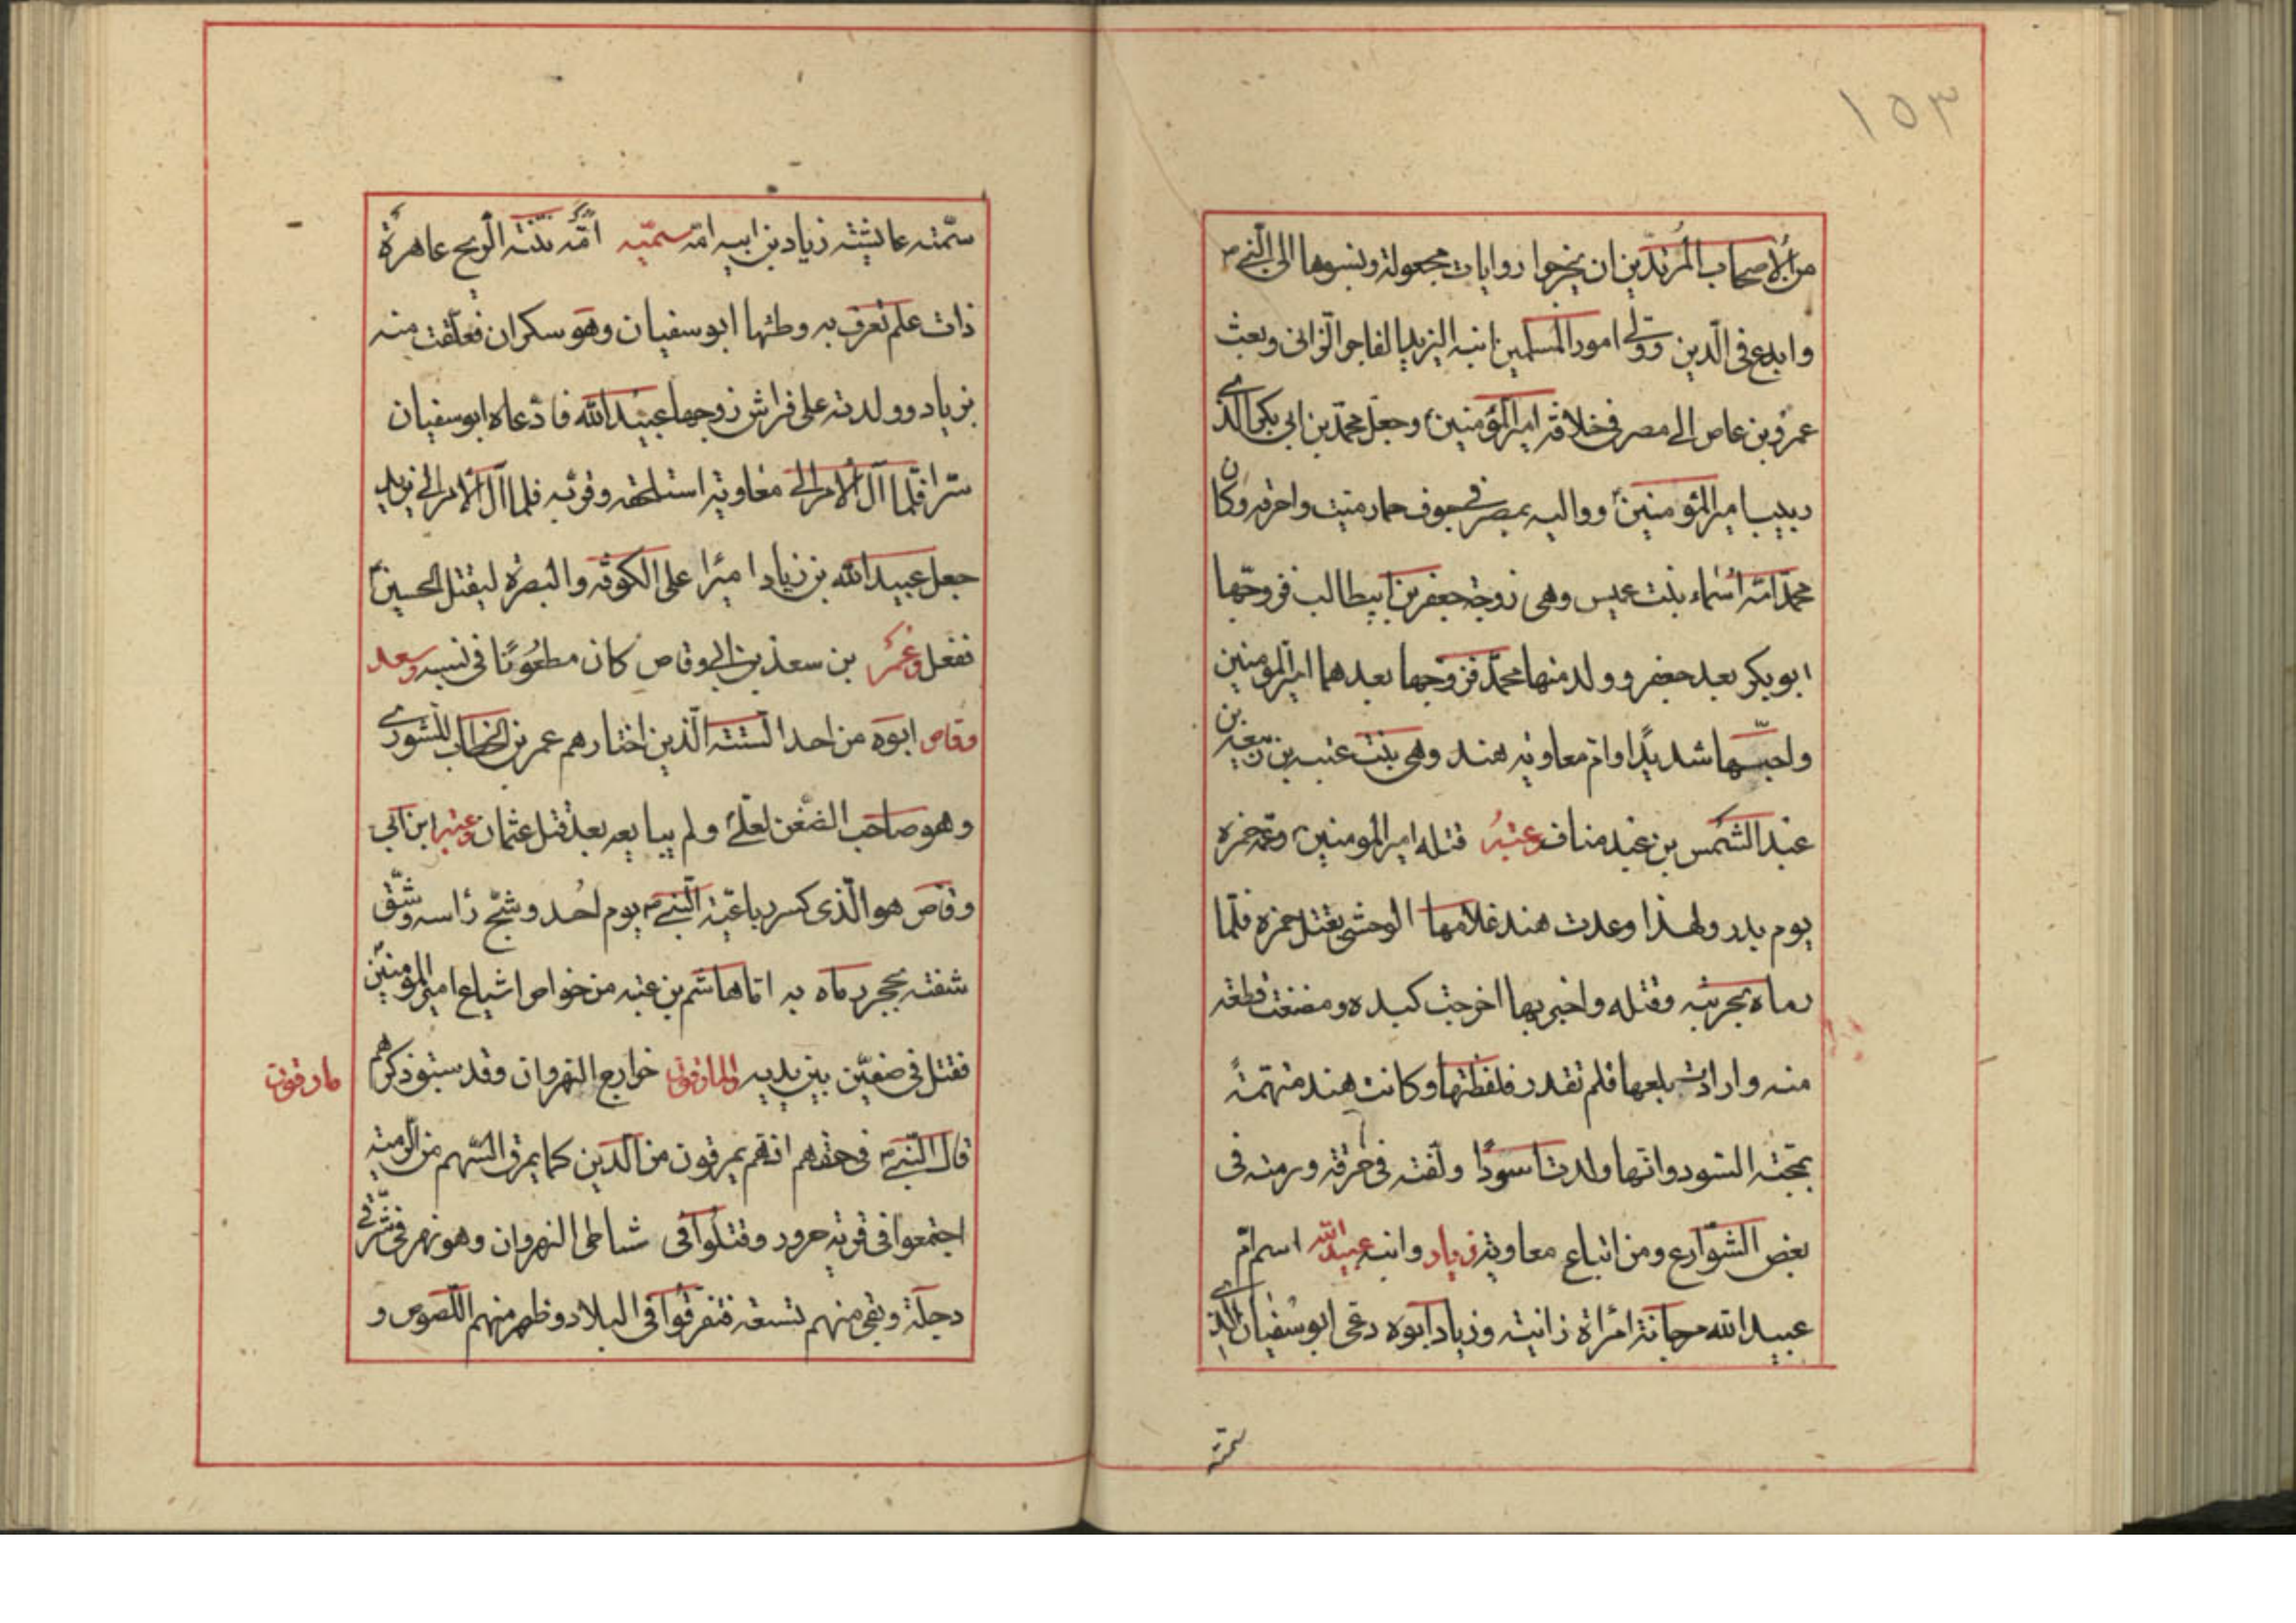 ١٥٣
من الأصحاب المرتدين ان يخرجوا روايات مجعولة وينسبوها الى النبي ص
وابدع في الدين وولى امور المسلمين ابنه اليزيد الفاجر الزاني وبعث
عمرو بن عاص الى مصر في خلافة امير المؤمنين وجعل محمد بن ابي بكر الذى
ربيب امير المؤمنين وواليه بمصر في جوف حمار ميت واحرقه وكان
محمد امّه اسماء بنت عميس وهى زوجة جعفر بن ابيطالب فزوجها
ابو بكر بعد جعفر وولد منها محمد فزوجها بعدهما امير المؤمنين
واحبها شديدًا وام معاويه هند وهى بنت عتبه بن ربيعه بن
عبد الشمس بن عبد مناف وعتبه قتله امير المومنين وعمه حمزه
يوم بدر ولهذا وعدت هند غلامها الوحشى بقتل حمزه فلما
رماه بحربته وقتله واخبر بها اخرجت كبده ومضغت قطعه
منه وارادت بلعها فلم تقدر فلفظتها وكانت هند متهمةً
بمحبّة السود وانها ولدت اسودًا ولفته في خرقة ورمته في
بعض الشوارع ومن اتباع معاوية زياد وابنه عبيد الله اسم ام
عبيد الله مرجانة امراة زانيته وزياد ابوه دعى ابو سفيان الذي
سمته
سمّته عايشته زياد بن ابيه امّه سميّه امّه نتنة الريح عاهرة
ذات علم تعرف به وطئها ابو سفيان وهو سكران فعلقت منه
بزياد وولدته على فراش زوجها عبيد الله فادعاه ابو سفيان
سرا فلما آل الامر الى معاوية استلحقه وقربه فلما آل الامر الى يزيد
جعل عبيد الله بن زياد اميرا على الكوفه والبصره ليقتل الحسين
ففعل وعمر بن سعد بن ابي وقاص كان مطعونًا في نسبه وسعد
وقاص ابوه من احد الستة الذين اختارهم عمر بن الخطاب للشورى
وهو صاحب الضغن لعلى ولم يبايعه بعد قتل عثمان وعتبه ابن ابي
وقاص هو الذي كسر رباعية النبي ص يوم احد وشج رأسه وشق
شفته بحجر رماه به اما هاشم بن عتبه من خواص اشياع امير المؤمنين
فقتل في صفين بين يديه والمارقون خوارج النهروان وقد سبق ذكرهم
مارقون
قال النبي ص في حقهم انهم يمرقون من الدين كما يمرق السهم من الرميه
اجتمعوا في قرية حرور وقتلوا في شاطى النهروان وهو نهر في شرقي
دجلة وبقي منهم تسعة فتفرقوا في البلاد وظهر منهم اللصوص و